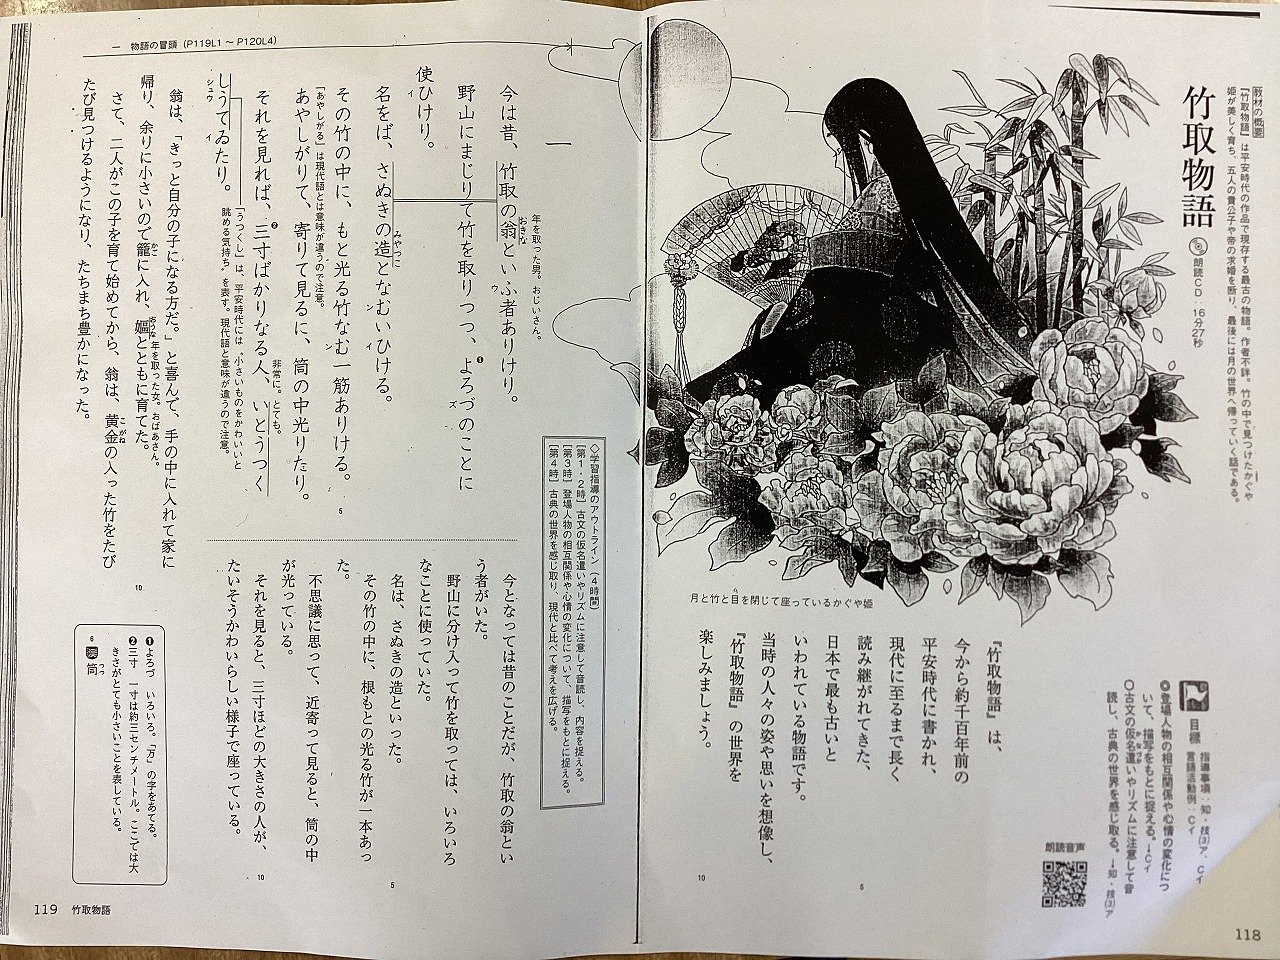 教材の概要
『竹取物語』は平安時代の作品で現存する最古の物語。作者不詳。竹の中で見つけたかぐや
姫が美しく育ち、五人の貴公子や帝の求婚を断り、最後には月の世界へ帰っていく話である。
竹取物語
朗読CD・16分27秒
月と竹と目を閉じて座っているかぐや姫
目標
指導事項・知・技⑶ア、Cイ
言語活動例・Cイ
◎登場人物の相互関係や心情の変化につ
いて、描写をもとに捉える。→Cイ
○古文の仮名遣いやリズムに注意して音
読し、古典の世界を感じ取る。→知・技⑶ア
朗読音声
『竹取物語』は、
今から約千百年前の
平安時代に書かれ、
現代に至るまで長く
読み継がれてきた、
日本で最も古いと
いわれている物語です。
当時の人々の姿や思いを想像し、
『竹取物語』の世界を
楽しみましょう。
5
10
118
一 物語の冒頭（P119L1～P120L4）
◇学習指導のアウトライン（4時間）
［第1・2時］古文の仮名遣いやリズムに注意して音読し、内容を捉える。
［第3時］登場人物の相互関係や心情の変化について、描写をもとに捉える。
［第4時］古典の世界を感じ取り、現代と比べて考えを広げる。
一
年を取った男。おじいさん。
今は昔、竹取の翁といふ者ありけり。
おきな
ウ
野山にまじりて竹を取りつつ、❶よろづのことに
ズ
使ひけり。
イ
名をば、さぬきの造となむいひける。
みやつこ
ン イ
その竹の中に、もと光る竹なむ一筋ありける。
ン
5
「あやしがる」は現代語とは意味が違うので注意。
あやしがりて、寄りて見るに、筒の中光りたり。
非常に。とても。
それを見れば、❷三寸ばかりなる人、いとうつく
しうてゐたり。
シュウ イ
「うつくし」は、平安時代には、「小さいものをかわいいと
眺める気持ち」を表す。現代語と意味が違うので注意。
翁は、「きっと自分の子になる方だ。」と喜んで、手の中に入れて家に
帰り、余りに小さいので籠に入れ、嫗とともに育てた。
かご
おうな 年を取った女。おばあさん。
さて、二人がこの子を育て始めてから、翁は、黄金の入った竹をたび
こがね
たび見つけるようになり、たちまち豊かになった。
10
今となっては昔のことだが、竹取の翁とい
う者がいた。
野山に分け入って竹を取っては、いろいろ
なことに使っていた。
名は、さぬきの造といった。
5
その竹の中に、根もとの光る竹が一本あっ
た。
不思議に思って、近寄って見ると、筒の中
が光っている。
それを見ると、三寸ほどの大きさの人が、
10
たいそうかわいらしい様子で座っている。
❶よろづ いろいろ。「万」の字をあてる。
❷三寸 一寸は約三センチメートル。ここでは大
きさがとても小さいことを表している。
6
筒
つつ
119 竹取物語